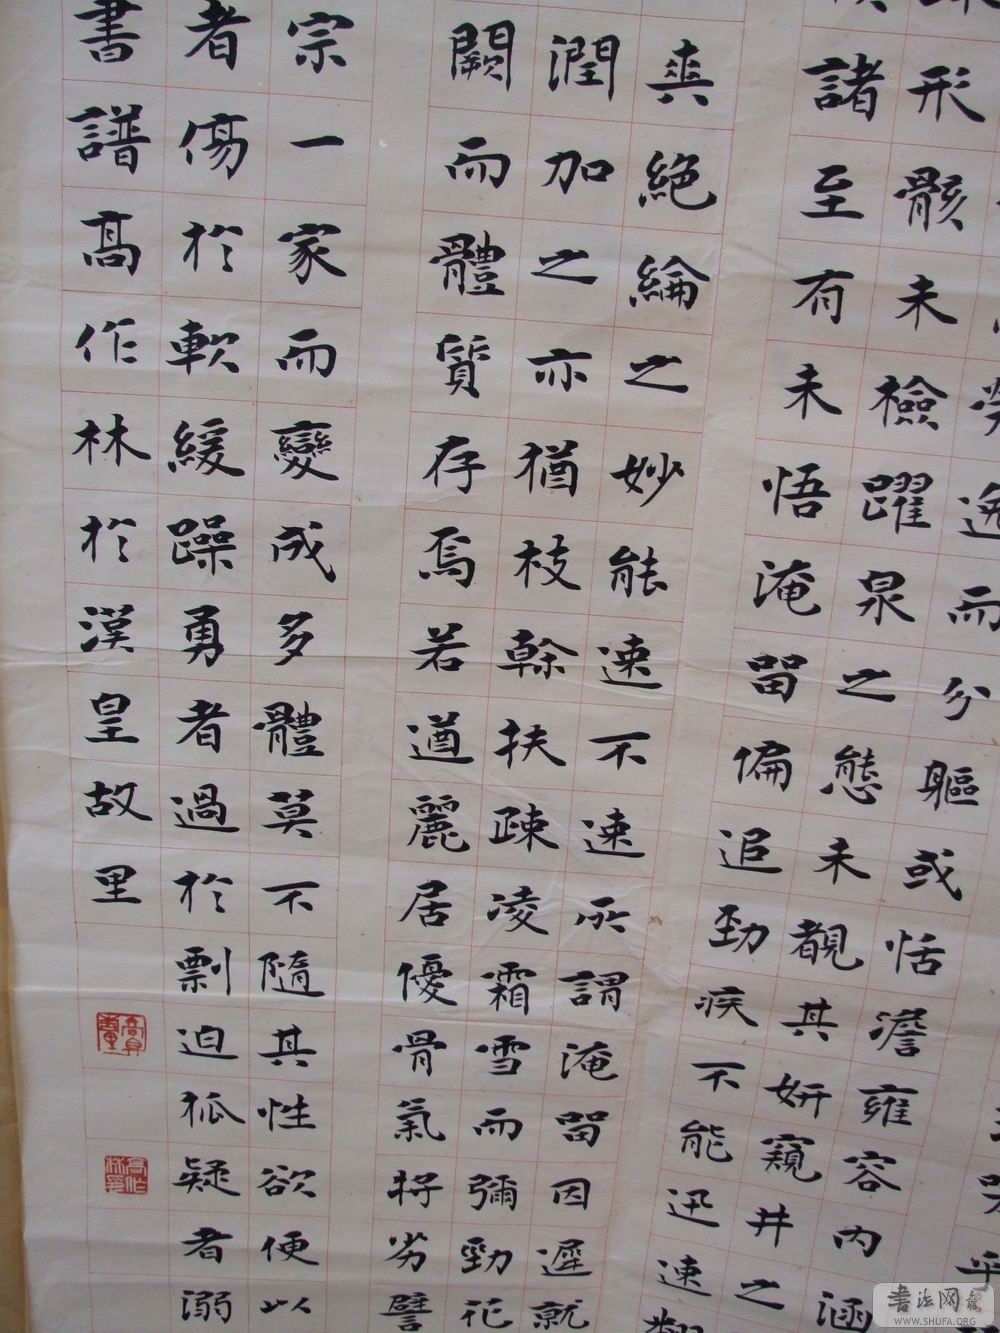 勞逸而分軀或恬澹雍容內涵
形骸未檢躍泉之態未覩其妍窺井之
諸至有未悟淹留偏追勁疾不能迅速翻
爽絕綸之妙能速不速所謂淹留因遲就
潤加之亦猶枝幹扶疎凌霜雪而彌勁花
闕而體質存焉若遒麗居優骨氣將劣譬
宗一家而變成多體莫不隨其性欲便以
者傷於軟緩躁勇者過於剽迫狐疑者溺
書譜高作林於漢皇故里
高作林印
书法网
WWW.SHUFA.ORG